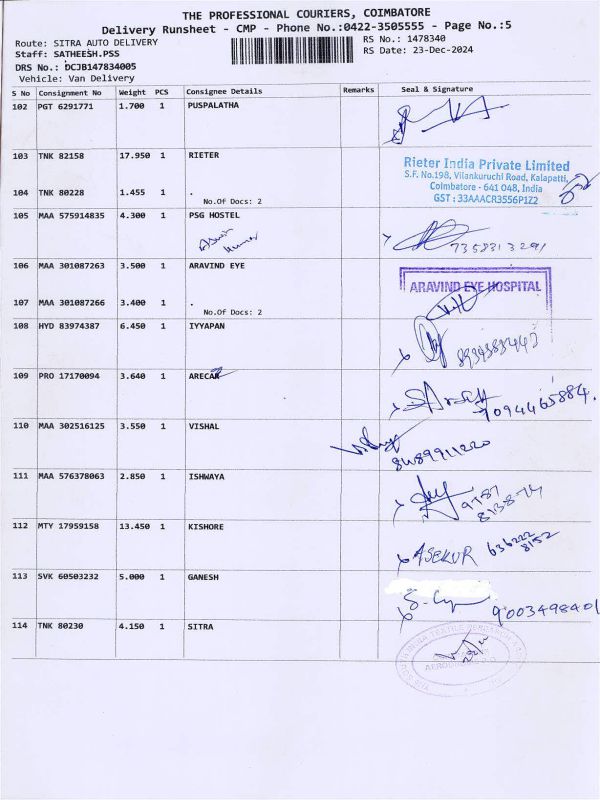 THE PROFESSIONAL COURIERS, COIMBATORE
Delivery Runsheet - CMP - Phone No.:0422-3505555 - Page No.:5
Route: SITRA AUTO DELIVERY
RS No.: 1478340
Staff: SATHEESH.PSS
RS Date: 23-Dec-2024
DRS No.: DCJB147834005
Vehicle: Van Delivery
S No Consignment No Weight PCS Consignee Details Remarks Seal & Signature
102 PGT 6291771 1.700 1 PUSPALATHA
103 TNK 82158 17.950 1 RIETER
Rieter India Private Limited
S.F. No.198, Vilankuruchi Road, Kalapatti,
Coimbatore - 641 048, India
GST : 33AAACR3556P1Z2
104 TNK 80228 1.455 1 .
No.Of Docs: 2
105 MAA 575914835 4.300 1 PSG HOSTEL
7358313291
106 MAA 301087263 3.500 1 ARAVIND EYE
ARAVIND EYE HOSPITAL
107 MAA 301087266 3.400 1 .
No.Of Docs: 2
108 HYD 83974387 6.450 1 IYYAPAN
109 PRO 17170094 3.640 1 ARECA
9094465884.
110 MAA 302516125 3.550 1 VISHAL
8489911220
111 MAA 576378063 2.850 1 ISHWAYA
112 MTY 17959158 13.450 1 KISHORE
636222
8152
113 SVK 60503232 5.000 1 GANESH
9003498401
114 TNK 80230 4.150 1 SITRA